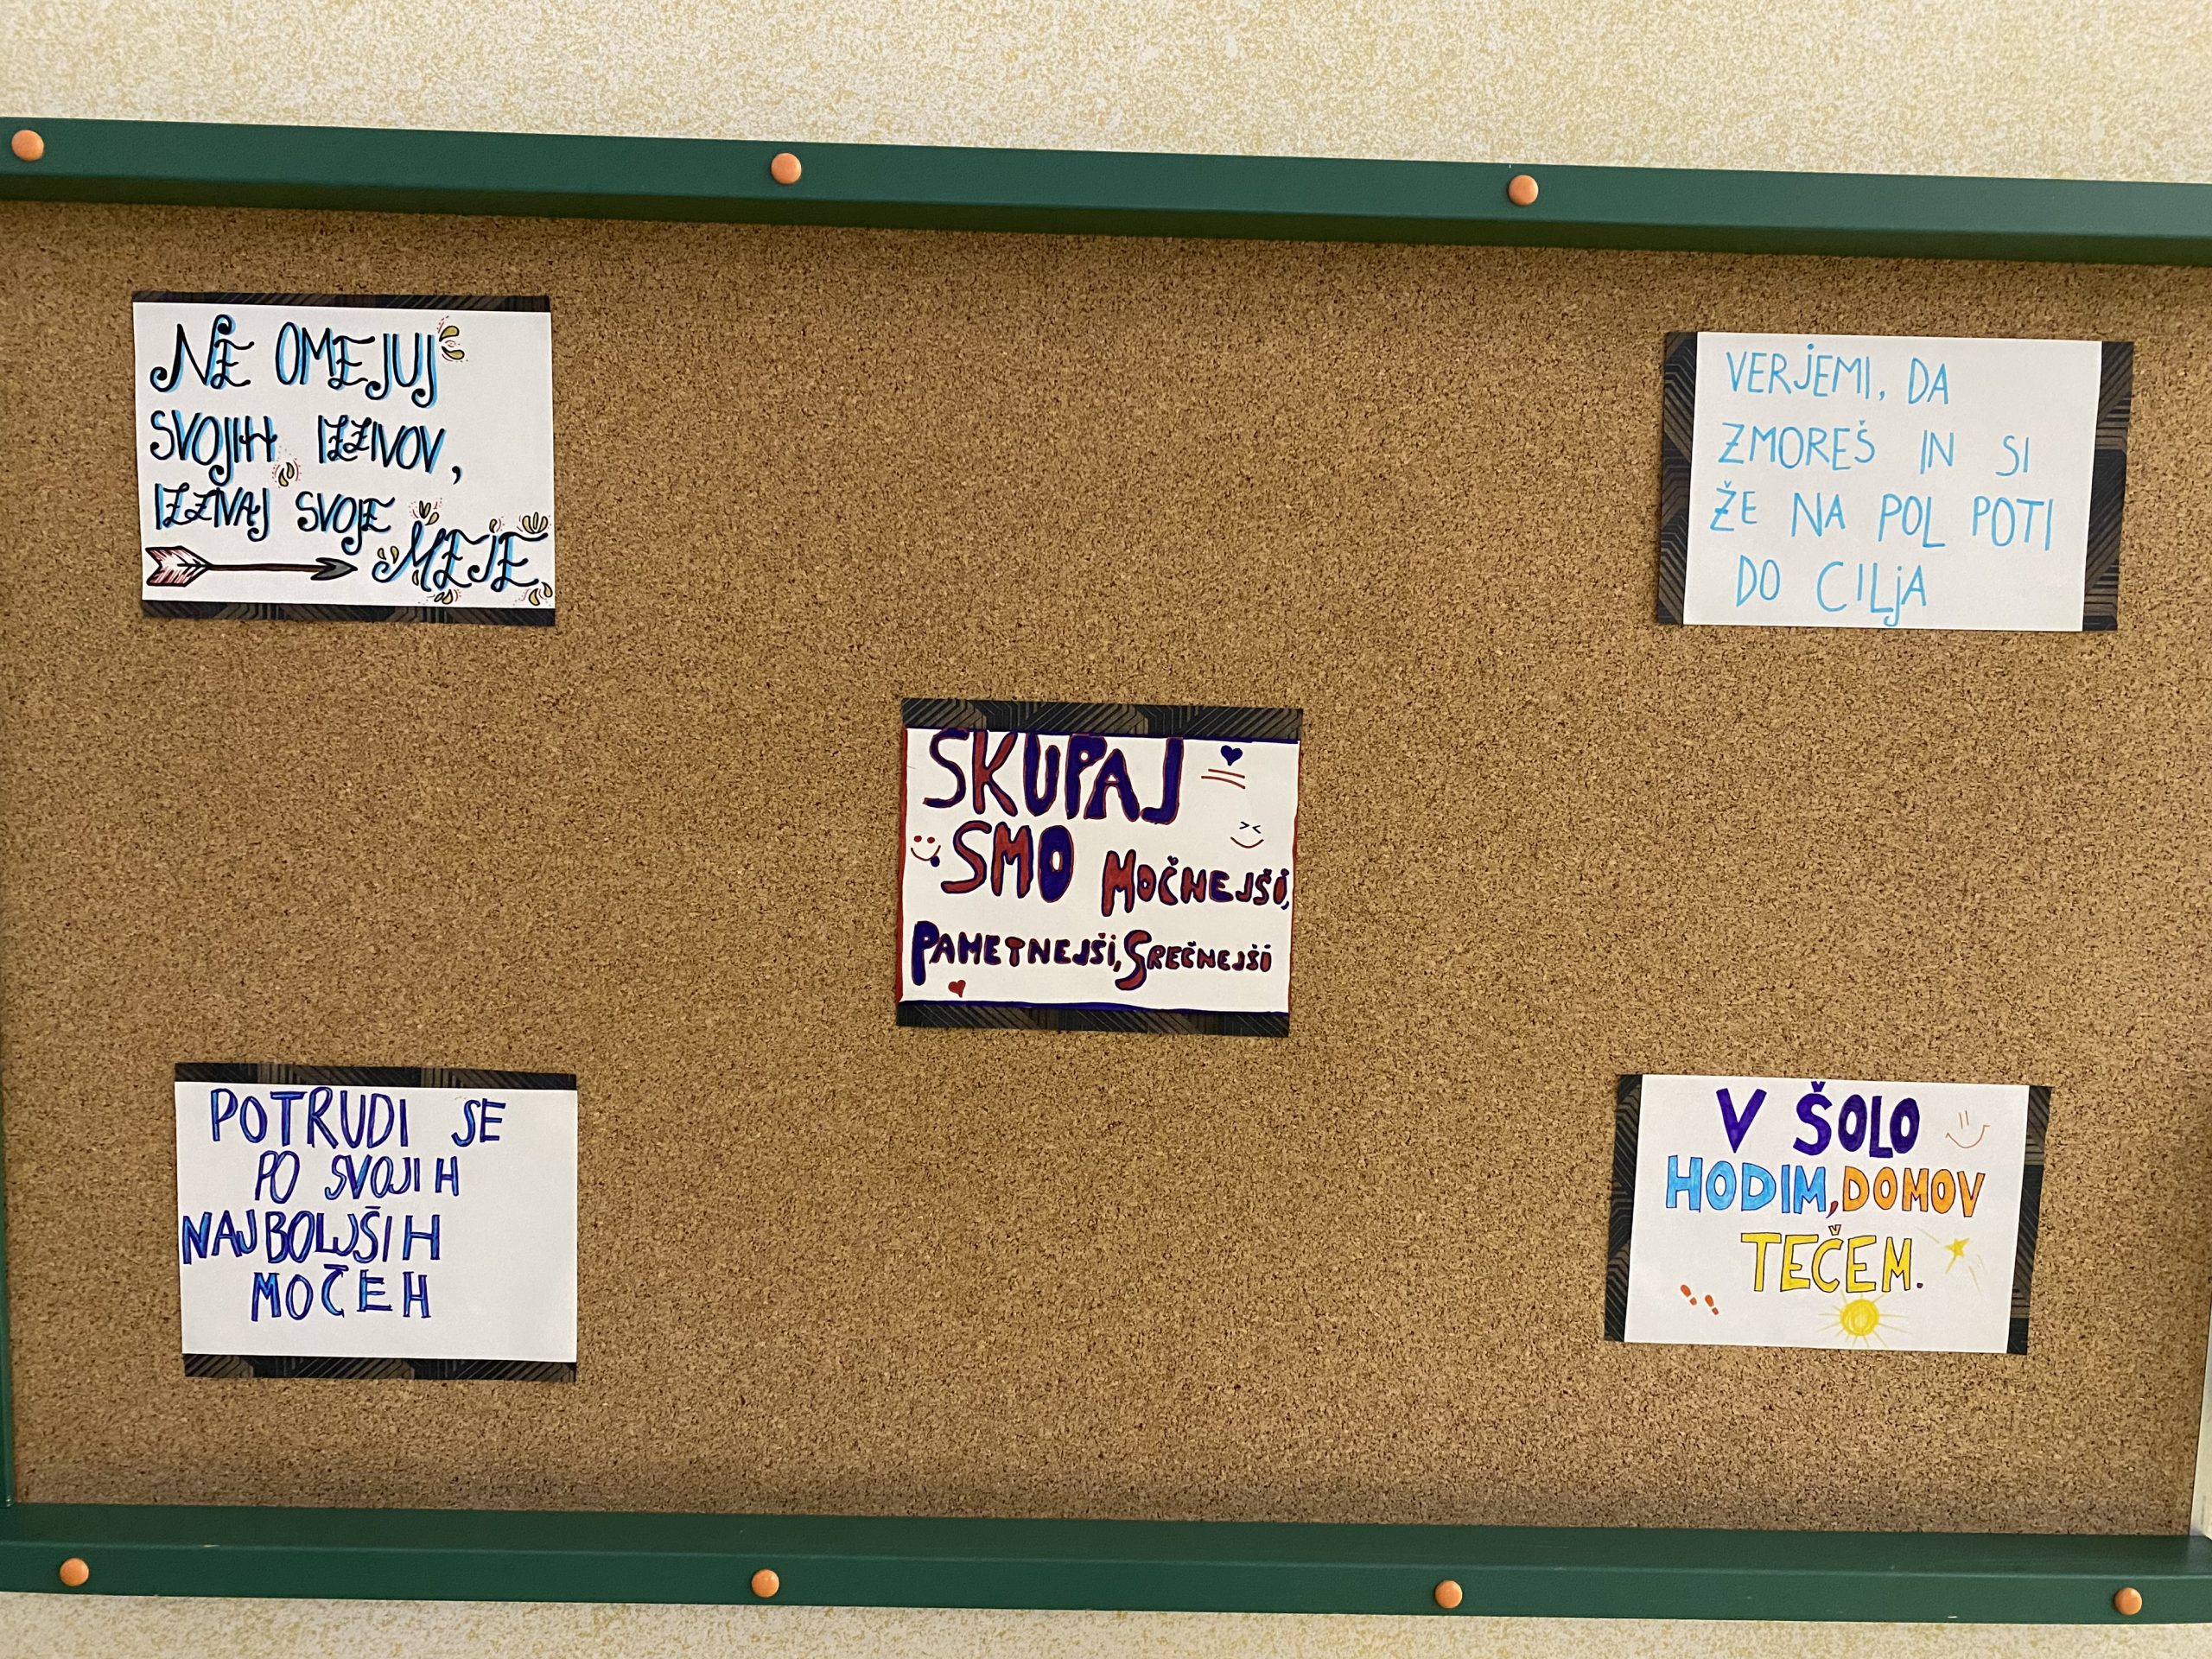 NE OMEJUJ
SVOJIH IZZIVOV,
IZZIVAJ SVOJE
MEJE
VERJEMI, DA
ZMOREŠ IN SI
ŽE NA POL POTI
DO CILjA
SKUPAJ
SMO MOČNEJŠI,
PAMETNEJŠI, SREČNEJŠI
POTRUDI SE
PO SVOJIH
NAJBOLJŠIH
MOČEH
V ŠOLO
HODIM, DOMOV
TEČEM.